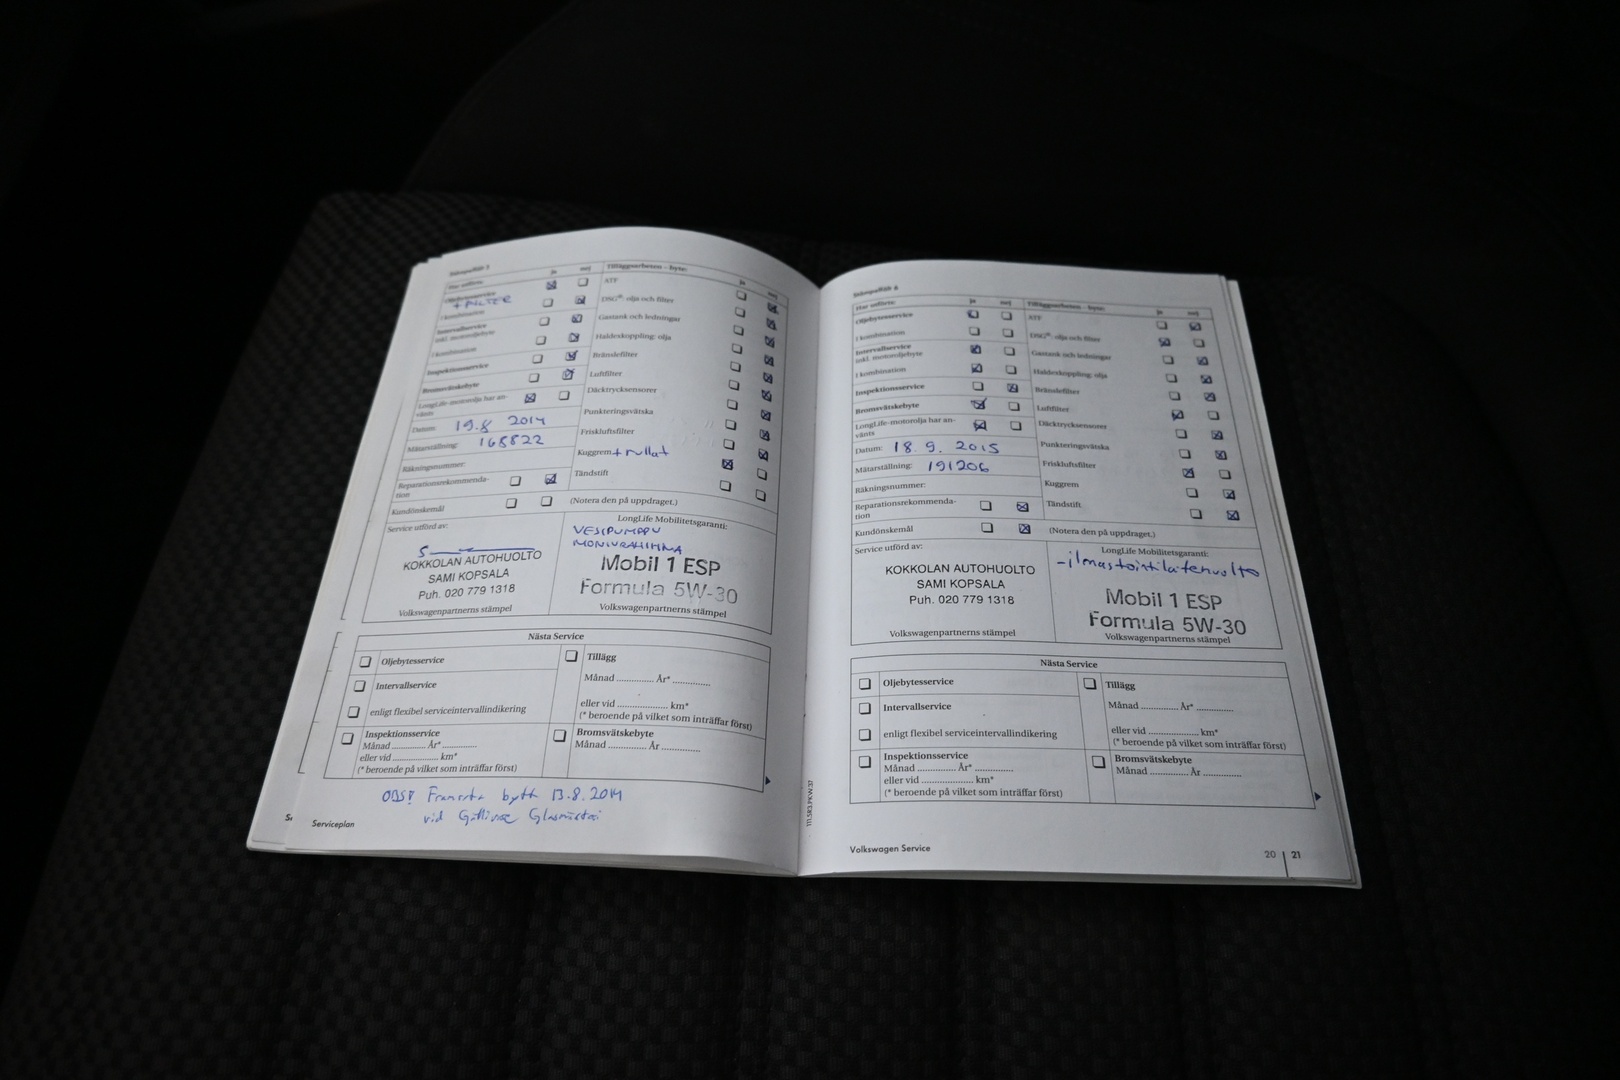 Stämpelfält 5
Har utförts:
ja
nej
Oljebytesservice
+ FILTER
i kombination
Intervallservice
inkl. motoroljebyte
i kombination
Inspektionsservice
Bromsvätskebyte
LongLife-motorolja har an-
vänts
Datum: 19.8 2014
Mätarställning: 168822
Räkningsnummer:
Reparationsrekommenda-
tion
Kundönskemål
Tilläggsarbeten – byte:
ja
nej
ATF
DSG®: olja och filter
Gastank och ledningar
Haldexkoppling: olja
Bränslefilter
Luftfilter
Däcktrycksensorer
Punkteringsvätska
Friskluftsfilter
Kuggrem + rullat
Tändstift
(Notera den på uppdraget.)
Service utförd av:
KOKKOLAN AUTOHUOLTO
SAMI KOPSALA
Puh. 020 779 1318
Volkswagenpartnerns stämpel
LongLife Mobilitetsgaranti:
VESIPUMPPU
MONIURAHIHNA
Mobil 1 ESP
Formula 5W-30
Volkswagenpartnerns stämpel
Nästa Service
Oljebytesservice
Intervallservice
enligt flexibel serviceintervallindikering
Inspektionsservice
Månad ............ År* ............
eller vid ................... km*
(* beroende på vilket som inträffar först)
Tillägg
Månad ............. År* .............
eller vid ................... km*
(* beroende på vilket som inträffar först)
Bromsvätskebyte
Månad ............ År .............
OBS! Framruta bytt 13.8.2014
vid Gällivare Glasmästeri
Serviceplan
Stämpelfält 6
Har utförts:
ja
nej
Oljebytesservice
i kombination
Intervallservice
inkl. motoroljebyte
i kombination
Inspektionsservice
Bromsvätskebyte
LongLife-motorolja har an-
vänts
Datum: 18.9.2015
Mätarställning: 191206
Räkningsnummer:
Reparationsrekommenda-
tion
Kundönskemål
Tilläggsarbeten – byte:
ja
nej
ATF
DSG®: olja och filter
Gastank och ledningar
Haldexkoppling: olja
Bränslefilter
Luftfilter
Däcktrycksensorer
Punkteringsvätska
Friskluftsfilter
Kuggrem
Tändstift
(Notera den på uppdraget.)
Service utförd av:
KOKKOLAN AUTOHUOLTO
SAMI KOPSALA
Puh. 020 779 1318
Volkswagenpartnerns stämpel
LongLife Mobilitetsgaranti:
-ilmastointilaitehuolto
Mobil 1 ESP
Formula 5W-30
Volkswagenpartnerns stämpel
Nästa Service
Oljebytesservice
Intervallservice
enligt flexibel serviceintervallindikering
Inspektionsservice
Månad ............ År* .............
eller vid ................... km*
(* beroende på vilket som inträffar först)
Tillägg
Månad ............. År* .............
eller vid ................... km*
(* beroende på vilket som inträffar först)
Bromsvätskebyte
Månad ............ År .............
Volkswagen Service
20 | 21